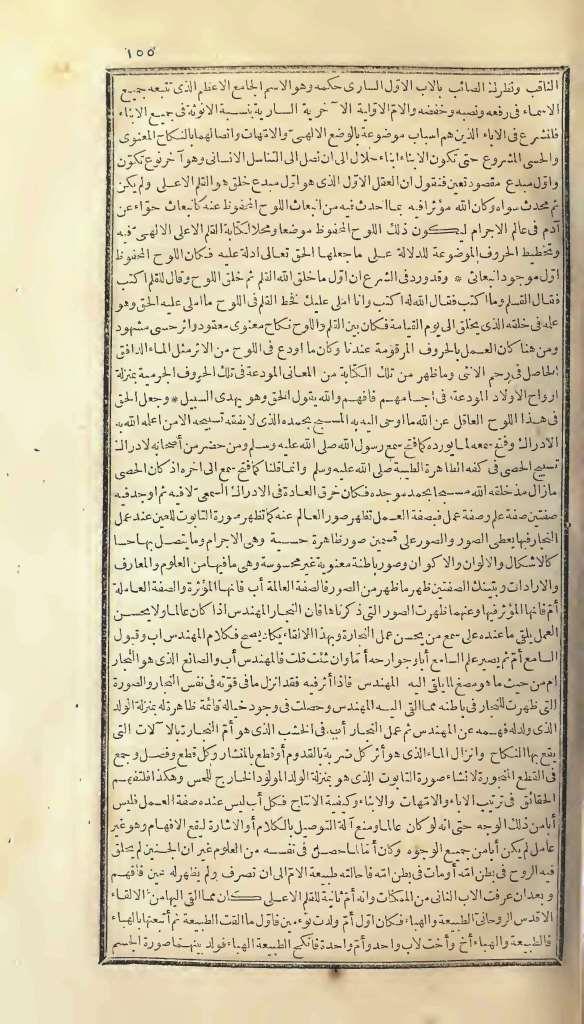 ١٥٥
الثاقب ونظرنا الصائب بالاب الاول السارى حكمه وهو الاسم الجامع الاعظم الذى تتبعه جميع
الاسماء فى رفعه ونصبه وخفضه والام الاولية الآخرية السارية بنسبة الانوثة فى جميع الابناء
فلنشرع فى الآباء الذين هم اسباب موضوعة بالوضع الالهى والامهات واتصالهما بالنكاح المعنوى
والحسى المشروع حتى تكون الابناء ابناء حلال الى ان نصل الى التناسل الانسانى وهو آخر نوع تكون
واول مبدع مقصود تعين فنقول ان العقل الاول الذى هو اول مبدع خلق هو القلم الاعلى ولم يكن
ثم محدث سواه وكان الله مؤثرا فيه بما احدث فيه من انبعاث اللوح المحفوظ عنه كانبعاث حواء عن
آدم فى عالم الاجرام ليكون ذلك اللوح المحفوظ موضعا ومحلا لكتابة القلم الاعلى الالهى فيه
وتخطيط الحروف الموضوعة للدلالة على ما جعلها الحق تعالى ادلة عليه فكان اللوح المحفوظ
اول موجود انبعاثى * وقد ورد فى الشرع ان اول ما خلق الله القلم ثم خلق اللوح وقال للقلم اكتب
فقال القلم وما اكتب فقال الله له اكتب وانا املى عليك فخط القلم فى اللوح ما املى عليه الحق وهو
علمه فى خلقه الذى يخلق الى يوم القيامة فكان بين القلم واللوح نكاح معنوى معقود واثر حسى مشهود
ومن هنا كان العمل بالحروف المرقومة عندنا وكان ما اودع فى اللوح من الاثر مثل الماء الدافق
الحاصل فى رحم الانثى وما ظهر من تلك الكتابة من المعانى المودعة فى تلك الحروف الجرمية بمنزلة
ارواح الاولاد المودعة فى اجسامهم فافهم والله يقول الحق وهو يهدى السبيل * وجعل الحق
فى هذا اللوح العاقل عن الله ما اوحى اليه به المسبح بحمده الذى لا يفقه تسبيحه الا من اعلمه الله به
الادراك وفتح سمعه لما يورده كما فتح سمع رسول الله صلى الله عليه وسلم ومن حضر من أصحابه لادراك
تسبيح الحصى فى كفه الطاهرة الطيبة صلى الله عليه وسلم وانما قلنا كما فتح سمع الى اخره اذ كان الحصى
ما زال مذ خلقه الله مسبحا بحمد موجده فكان خرق العادة فى الادراك السمعى لا فيه ثم اوجد فيه
صفتين صفة علم وصفة عمل فبصفة العمل تظهر صور العالم عنه كما تظهر صورة التابوت للعين عند عمل
النجار فبها يعطى الصور والصور على قسمين صور ظاهرة حسية وهى الاجرام وما يتصل بها حسا
كالاشكال والالوان والاكوان وصور باطنة معنوية غير محسوسة وهى ما فيها من العلوم والمعارف
والارادات وبتينك الصفتين ظهر ما ظهر من الصور فالصفة العالمة أب فانها المؤثرة والصفة العاملة
أم فانها المؤثر فيها وعنهما ظهرت الصور التى ذكرناها فان النجار المهندس اذا كان عالما ولا يحسن
العمل يلقى ما عنده على سمع من يحسن عمل النجارة وبهذا الالقاء نكاح فكلام المهندس اب وقبول
السامع أم ثم يصير علم السامع أبا وجوارحه أما وان شئت قلت فالمهندس أب والصانع الذى هو النجار
ام من حيث ما هو مصغ لما يلقى اليه المهندس فاذا أثر فيه فقد انزل ما فى قوته فى نفس النجار والصورة
التى ظهرت للنجار فى باطنه مما القى اليه المهندس وحصلت فى وجود خياله قائمة ظاهرة له بمنزلة الولد
الذى ولد له فهمه عن المهندس ثم عمل النجار أب فى الخشب الذى هو أم النجارة بالآلات التى
يقع بها النكاح وانزال الماء الذى هو أثر كل ضربة بالقدوم أو قطع بالمنشار وكل قطع وفصل وجمع
فى القطع المنجورة لانشاء صورة التابوت الذى هو بمنزلة الولد المولود الخارج للحس وهكذا فلتفهم
الحقائق فى ترتيب الاباء والامهات والابناء وكيفية الانتاج فكل أب ليس عنده صفة العمل فليس
أبا من ذلك الوجه حتى انه لو كان عالما ومنع آلة التوصيل بالكلام أو الاشارة ليقع الافهام وهو غير
عامل لم يكن أبا من جميع الوجوه وكان أما لما حصل فى نفسه من العلوم غير ان الجنين لم يخلق
فيه الروح فى بطن امه أو مات فى بطن امه فاحالته طبيعة الام الى ان تصرف ولم يظهر له عين فافهم
وبعد ان عرفت الاب الثانى من الممكنات وانه أم ثانية للقلم الاعلى كان مما القى اليها من الالقاء
الاقدس الروحانى الطبيعة والهباء فكان اول أم ولدت توءمين فاول ما القت الطبيعة ثم أتبعتها بالهباء
فالطبيعة والهباء أخ وأخت لاب واحد وأم واحدة فانكح الطبيعة الهباء فولد بينهما صورة الجسم